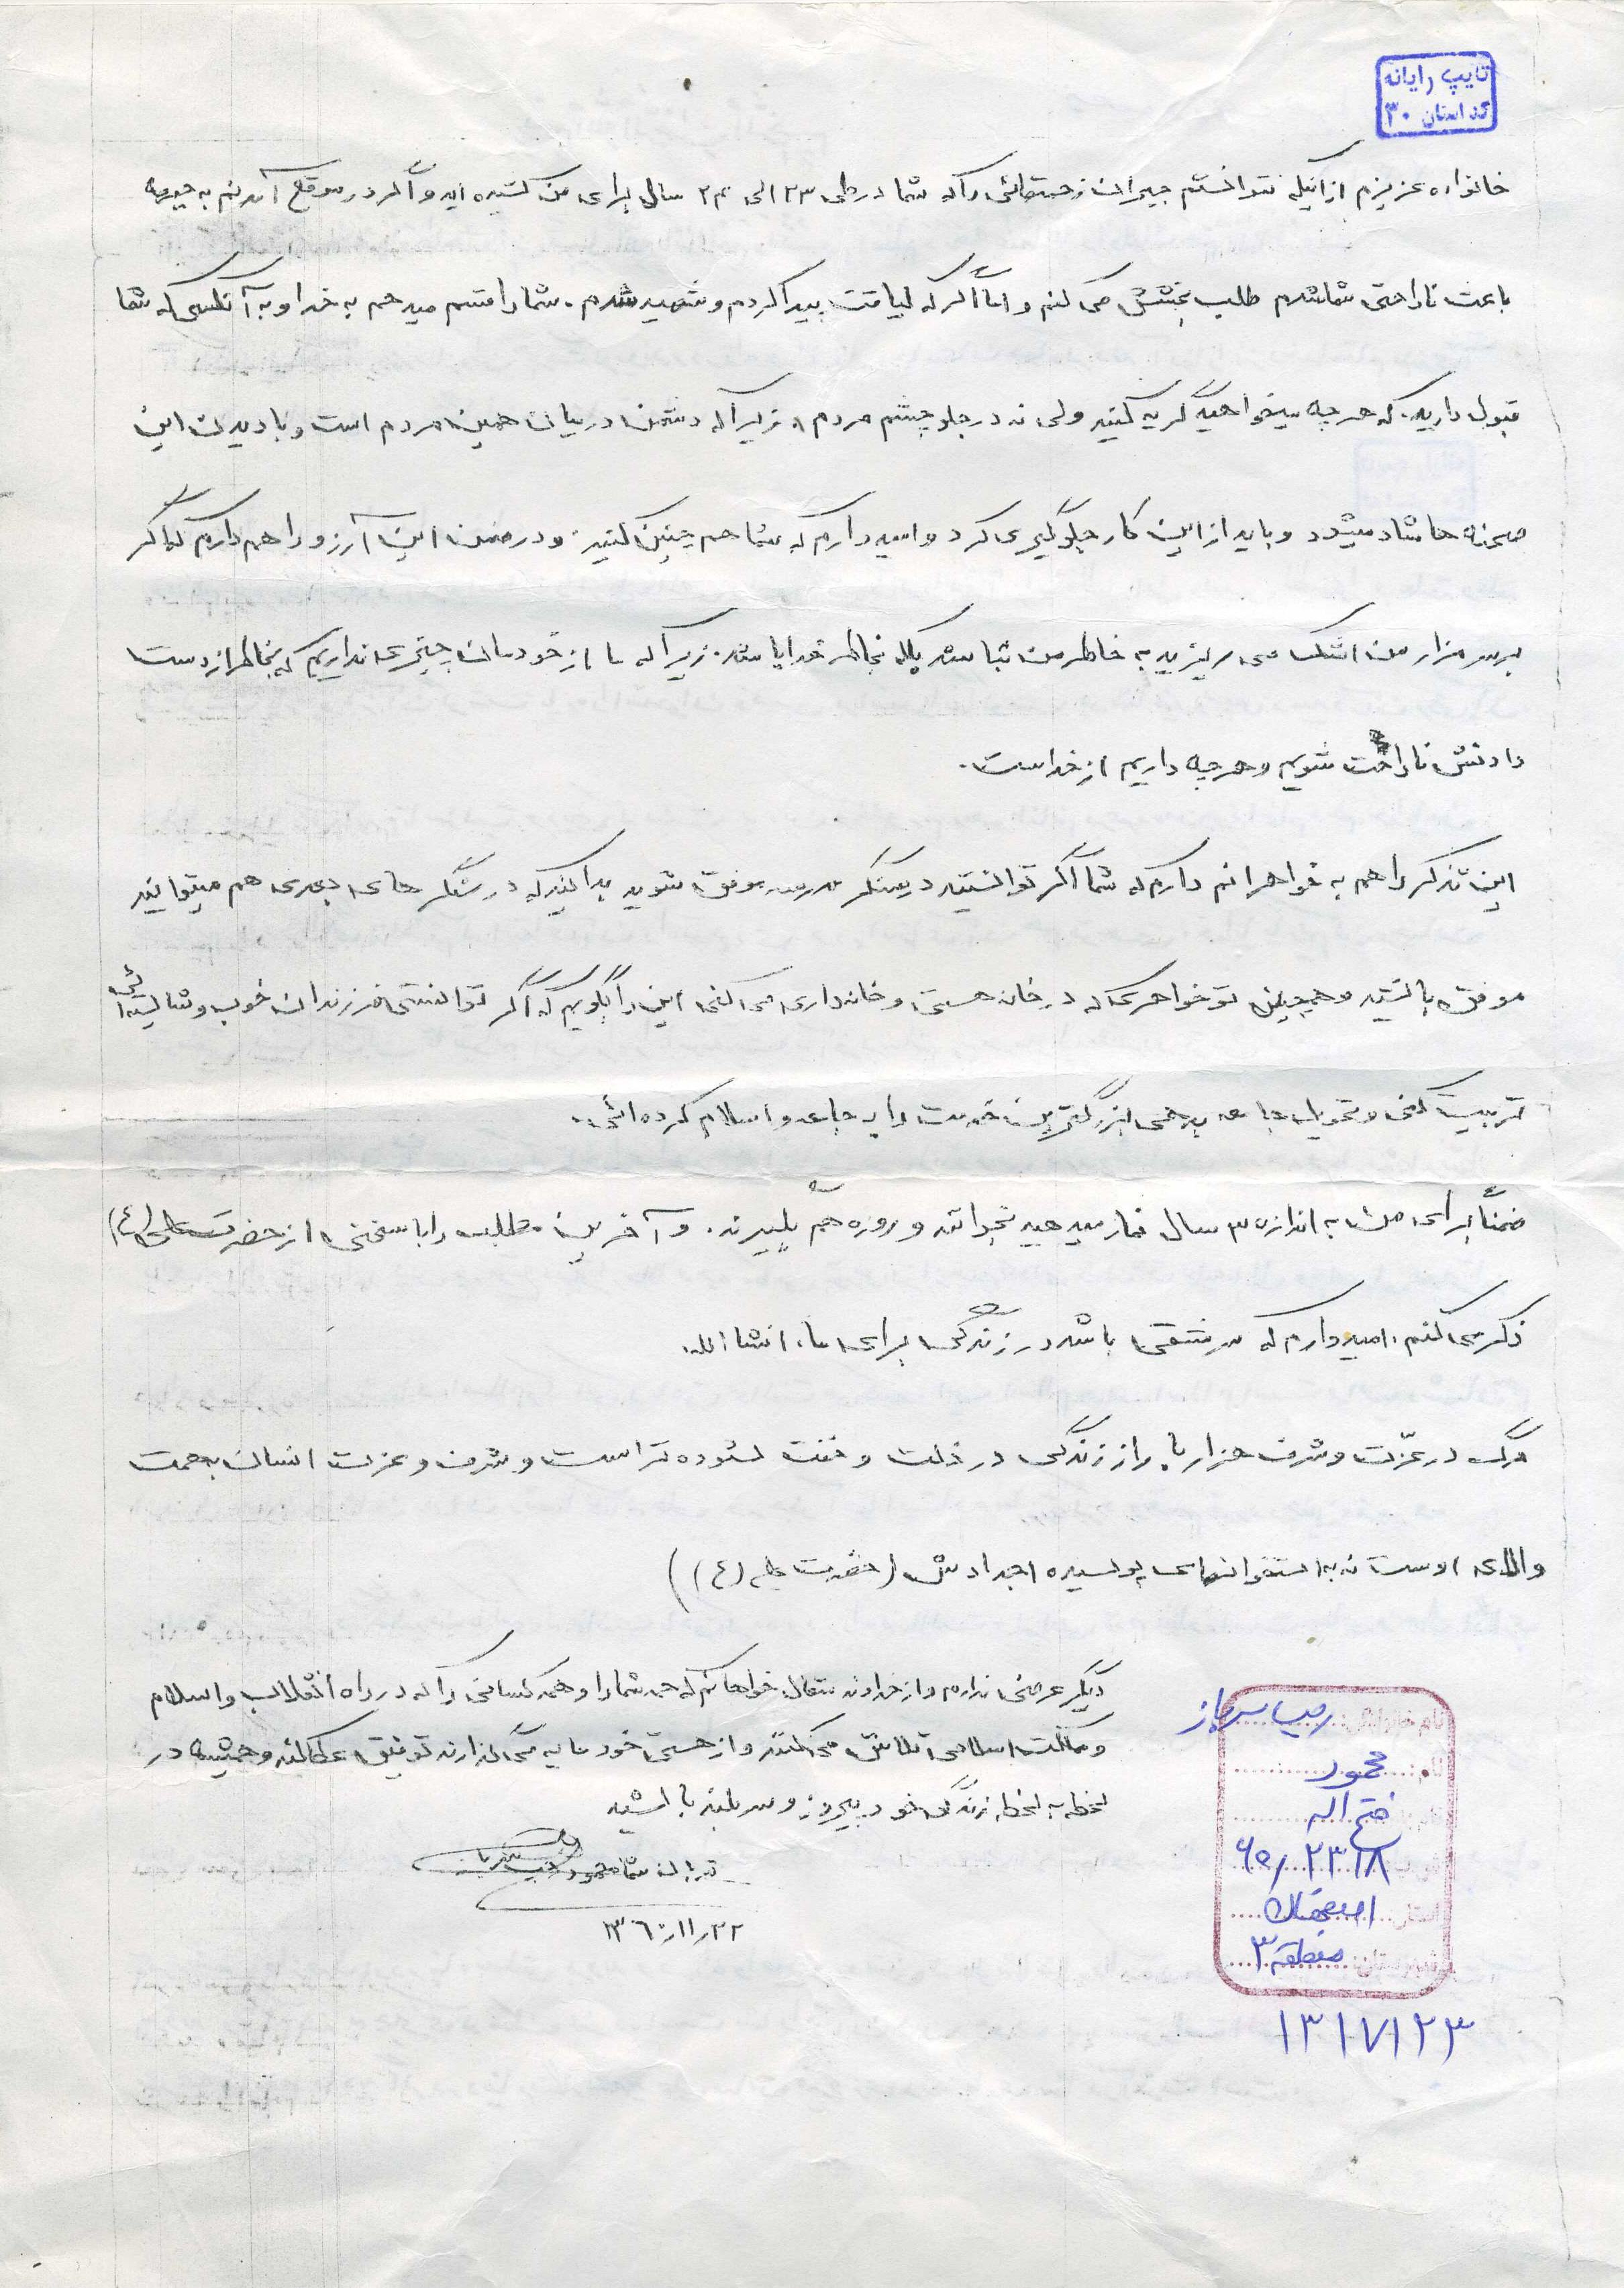 تایپ رایانه
کد استان ۳۰
خانواده عزیزم از اینکه نتوانستم جبران زحمتهائی را که شما در طی ۲۳ الی ۲۴ سال برای من کشیده اید و اگر در موقع آمدنم به جبهه
باعث ناراحتی شما شدم طلب بخشش می کنم و اما اگر که لیاقت پیدا کردم و شهید شدم . شما را قسم میدهم به خدا و به آنکسی که شما
قبول دارید. که هر چه میخواهید گریه کنید ولی نه در جلو چشم مردم ، زیرا که دشمن در میان همین مردم است و با دیدن این
صحنه ها شاد میشود و باید از این کار جلوگیری کرد و امید دارم که شما هم چنین کنید. و در ضمن این آرزو را هم دارم که اگر
بر سر مزار من اشک می ریزید به خاطر من نباشد بلکه بخاطر خدا باشد. زیرا که ما از خودمان چیزی نداریم که بخاطر از دست
دادنش ناراحت شویم و هر چه داریم از خداست.
این تذکر را هم به خواهرانم دارم که شما اگر توانستید در سنگر مدرسه موفق شوید بدانید که در سنگر های بعدی هم میتوانید
موفق باشید و همچنین تو خواهری که در خانه هستی و خانه داری می کنی این را بگویم که اگر توانستی فرزندان خوب و شایسته ائی
تربیت کنی و تحویل جامعه بدهی بزرگترین خدمت را به جامعه و اسلام کرده ائی.
ضمناً برای من به اندازه ۳ سال نماز بدهید بخوانند و روزه هم بگیرند. و آخرین مطلب را با سخنی از حضرت علی (ع)
ذکر می کنم. امیدوارم که سرمشقی باشد در زندگی برای ما، انشاالله.
مرگ در عزّت و شرف هزار بار از زندگی در ذلت و خفت ستوده تر است و شرف و عزت انسان به همت
والای اوست نه به استخوانهای پوسیده اجدادش (حضرت علی (ع) )
دیگر عرضی ندارم و از خداوند متعال خواهانم که همه شما را و همه کسانی را که در راه انقلاب و اسلام
و مملکت اسلامی تلاش می کنند و از هستی خود مایه می گذارند توفیق عطا کند و همیشه در
لحظه به لحظه زندگی خود پیروز و سربلند باشید
قربان شما محمود
۱۳۶۰/۱۱/۲۲
نام خانوادگی:
نام: محمود
فتح اله
۶۵/۲۳۱۸
استان: اصفهان
شهرستان: منطقه ۳
۱۳۱۷۱۲۳